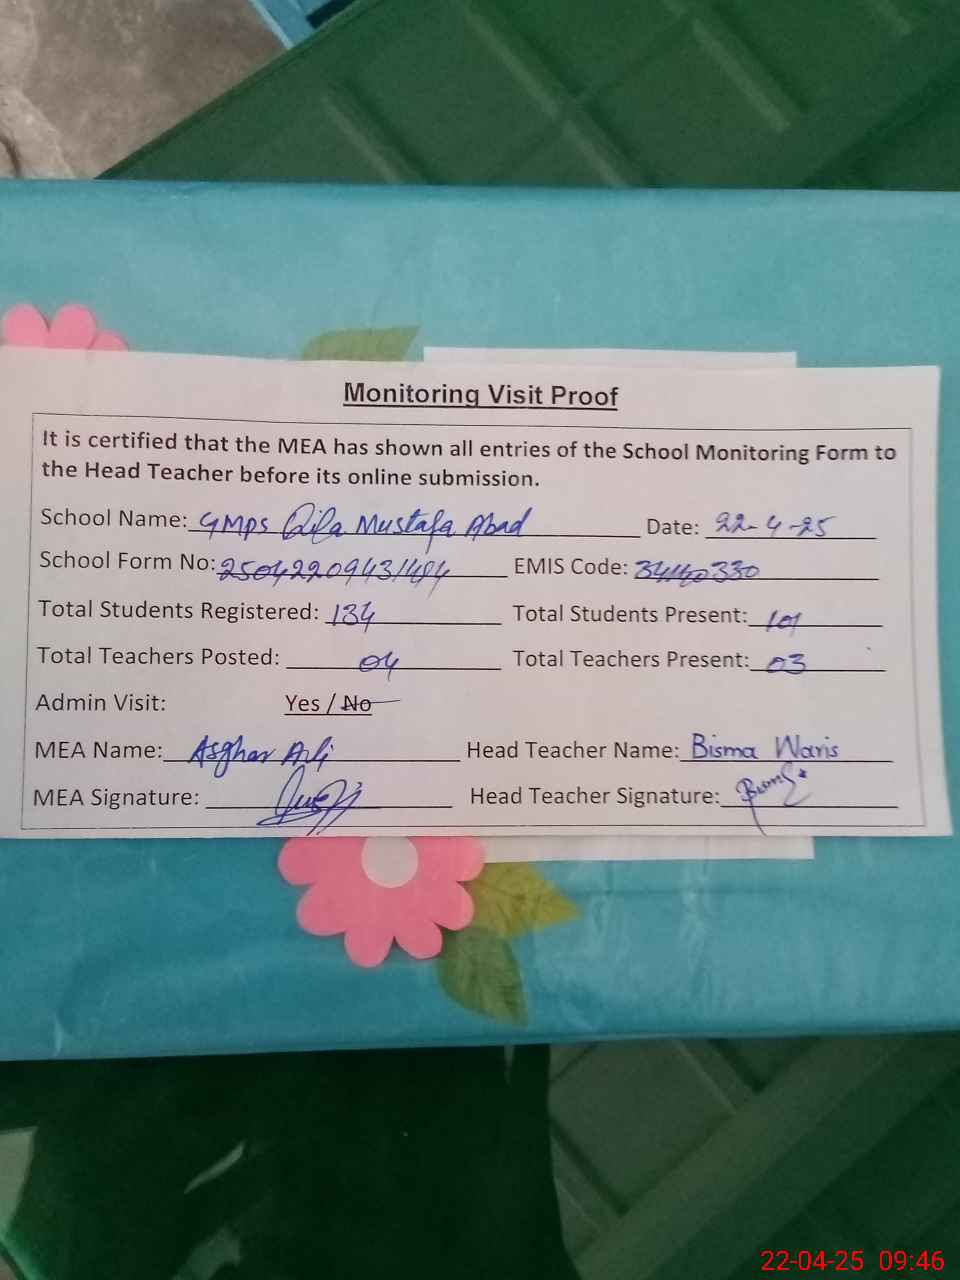 Monitoring Visit Proof
It is certified that the MEA has shown all entries of the School Monitoring Form to
the Head Teacher before its online submission.
School Name: GMPS Qila Mustafa Abad Date: 22-4-25
School Form No: EMIS Code: 34140330
Total Students Registered: 134 Total Students Present: 101
Total Teachers Posted: 04 Total Teachers Present: 03
Admin Visit: Yes / No
MEA Name: Asghar Ali Head Teacher Name: Bisma Waris
MEA Signature: Head Teacher Signature: Bisma
22-04-25 09:46